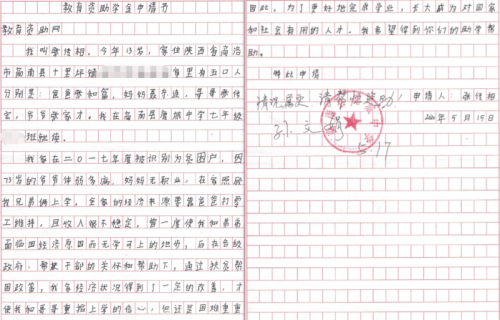 教育资助学金申请书
教育资助网
我叫张传相。今年13岁，家住陕西省商洛
市商南县十里坪镇 家里有五口人
分别是：爸爸张和富，妈妈聂冬连，哥哥张传
宝，爷爷张富才。我在商南县鹿城中学七年级
班就读。
我家在二〇一七年度被识别为贫困户，因
73岁的爷爷体弱多病，妈妈无职业，在家照顾
我兄弟俩上学，全家的经济来源要靠爸爸打零
工维持，且收入很不稳定，曾一度使我和哥哥
面临因经济原因而无学可上的地步，后在各级
政府，帮扶干部的关怀和帮助下，通过扶贫帮
困政策，我家经济状况得到了一定的改善，才
使我和哥哥重拾上学的信心，但还是困难重重
因此，为了更好地完成学业，长大成为对国家
和社会有用的人才。我希望得到你们的助学帮
助。
特此申请
情况属实，请帮忙资助！
申请人：张传相
2021年5月15日
孙文
5.17